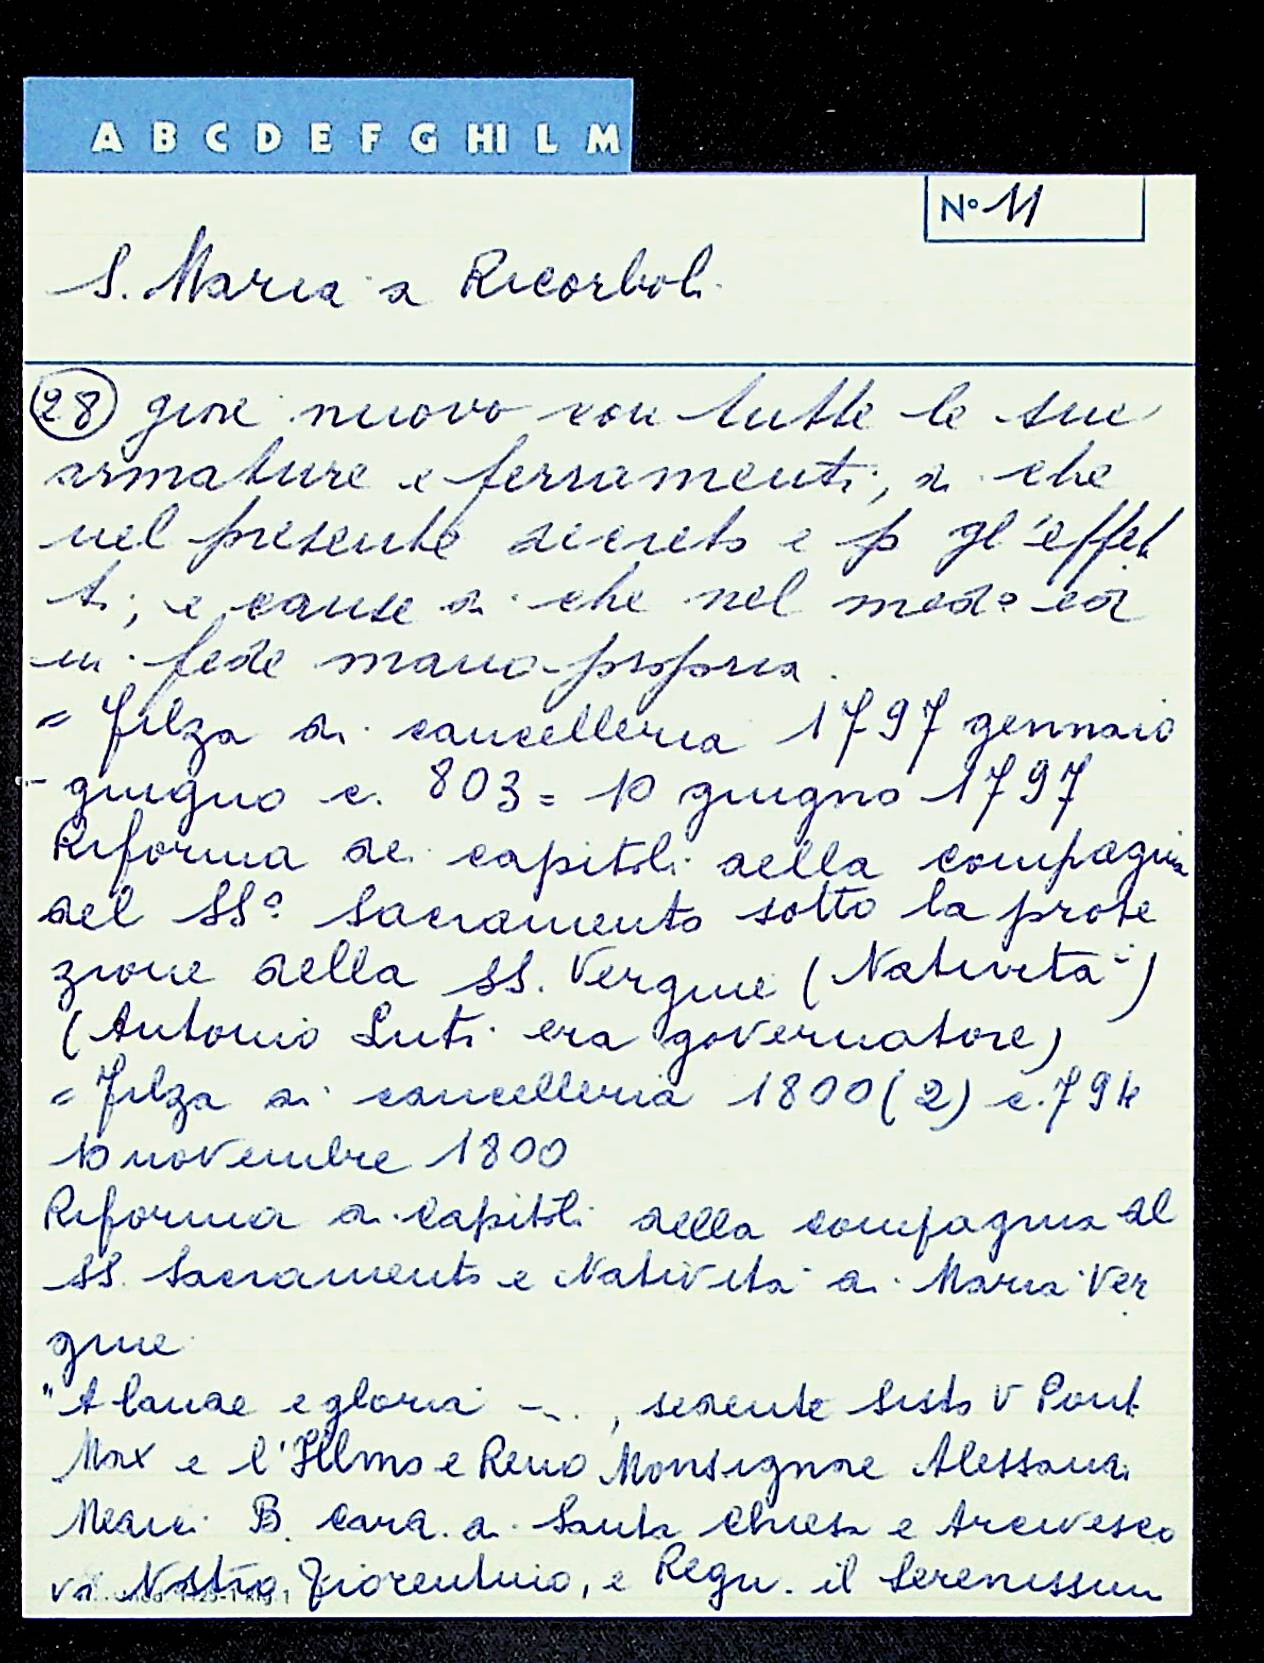 A B C D E F G HI L M
N° 11
S. Maria a Ricorboli
28 gine nuovo con tutte le sue
armature e ferramenti, di che
nel presente decreto e p gl'effet
ti, e cause di che nel med° ed
in fede mano propria.
= Filza di cancelleria 1797 gennaio
- giugno c. 803 = 10 giugno 1797
Riforma dei capitoli della compagnia
del SS° Sacramento sotto la prote
zione della SS. Vergine (Natività)
(Antonio Luti era governatore)
= Filza di cancelleria 1800 (2) c. 794
10 novembre 1800
Riforma di capitoli della compagnia del
SS. Sacramento e Natività di Maria Ver
gine
"A laude e gloria -..., sedente Sisto V Pont
Max e l'Illmo e Revo Monsignore Alessandr.
Medici B. Card. di Santa Chiesa e Arcivesco
vo Nostro Fiorentino, e Regn. il Serenissim